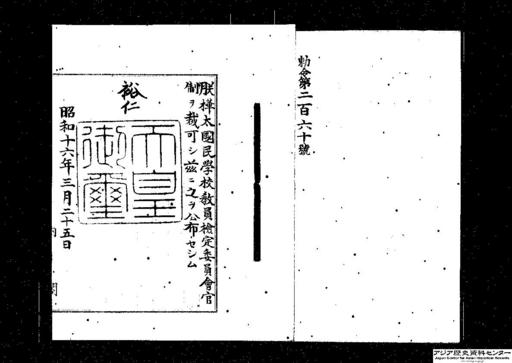 勅令第二百六十號
朕樺太國民學校敎員檢定委員會官
制ヲ裁可シ茲ニ之ヲ公布セシム
裕仁
天皇御璽
昭和十六年三月二十五日
内閣
アジア歴史資料センター
Japan Center for Asian Historical Records